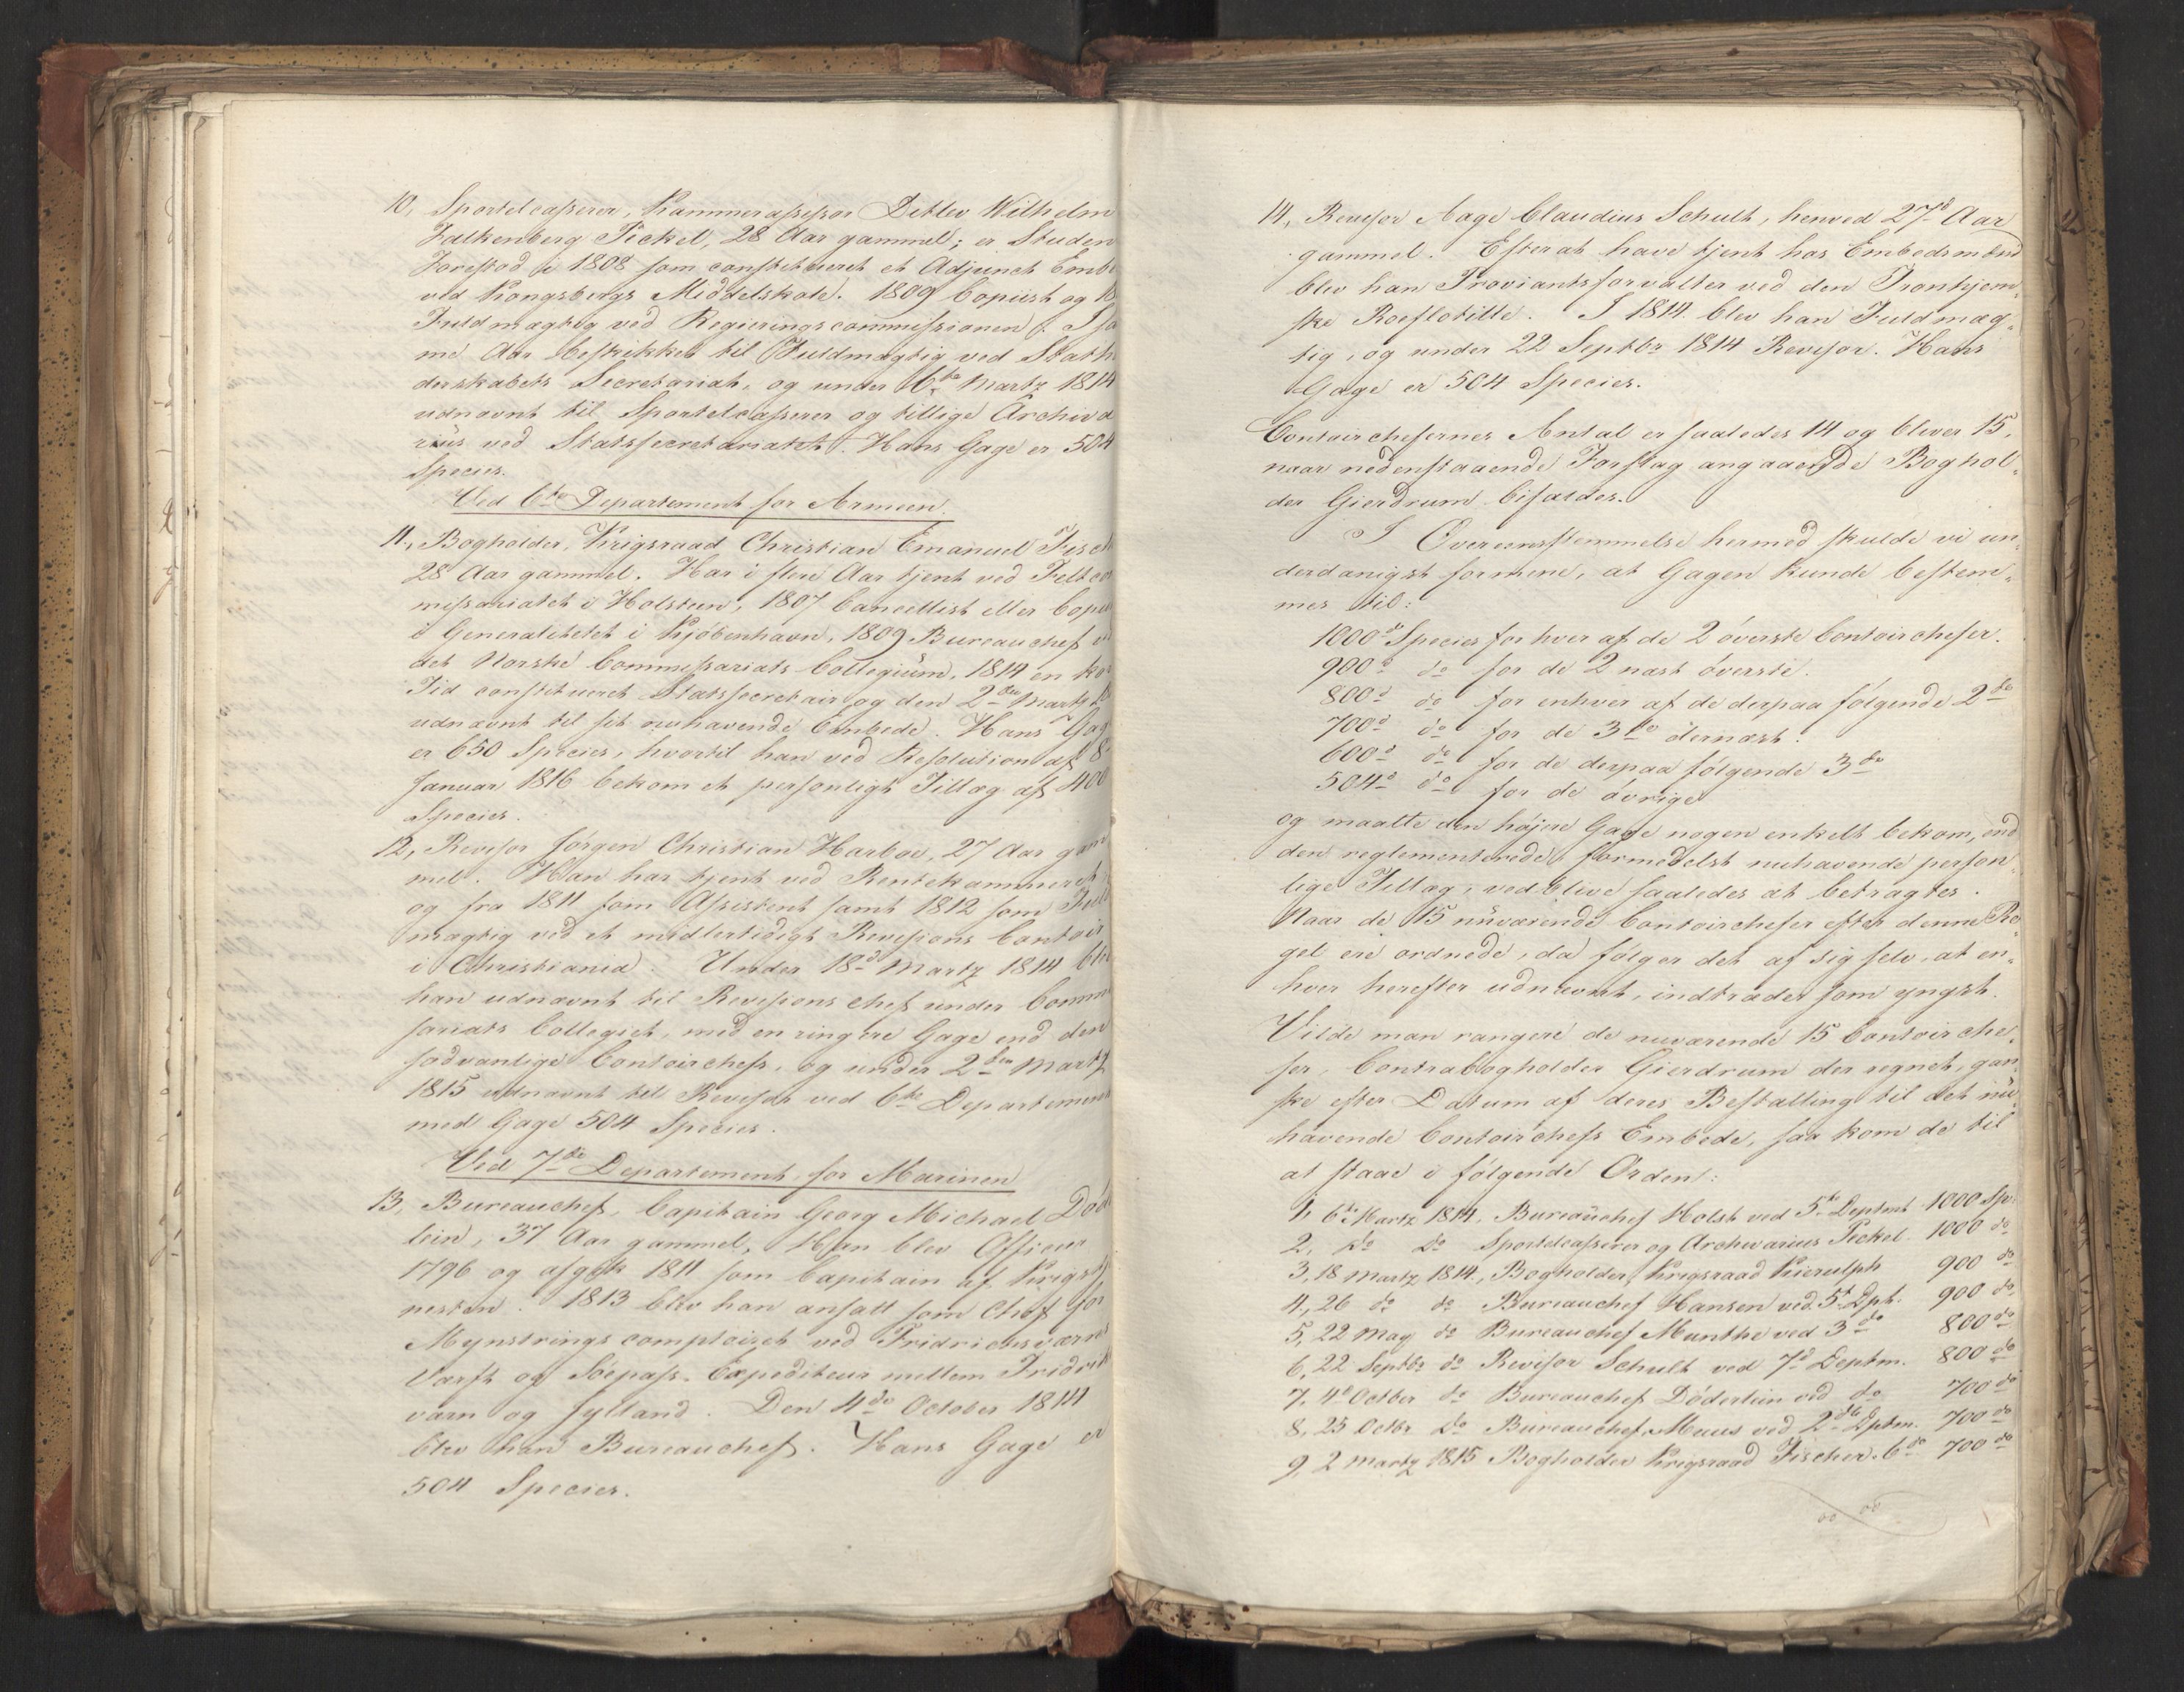 10, Sportelcasserer, Kammerassessor Detlev Wilhelm
Falkenberg Peckel, 28 Aar gammel; er Studen
Forestod i 1808 som constitueret et Adjunct Embe
ved Kongsbergs Middelskole. 1809 Copiist og 18
Fuldmægtig ved Regieringscommissionen. I sa
me Aar beskikket til Fuldmægtig ved Stath
derskabets Secretariat, og under 6te Martz 1814
udnævnt til Sportelcasserer og tillige Archiva
rius ved Statssecretariatet. Hans Gage er 504
Species.
Ved 6te Departement for Armeen.
11, Bogholder, Krigsraad Christian Emanuel Fisch
28 Aar gammel. Har i flere Aar tjent ved Feltcom
missariatet i Holsteen, 1807 Cancellist eller Copi
i Generalitetet i Kjöbenhavn, 1809 Bureauchef v
det Norske Commissariats Collegium, 1814 en kor
Tid constitueret Statssecretair og den 2den Martz 18
udnævnt til sit nuhavende Embede. Hans Gag
er 650 Species, hvortil han ved Resolution af 8
Januar 1816 bekom et personligt Tillæg af 400
Species.
12, Revisor Jörgen Christian Harboe, 27 Aar gam
mel. Han har tjent ved Rentekammeret
og fra 1811 som Assistent samt 1812 som Fuld
mægtig ved et midlertidigt Revisions Contoir
i Christiania. Under 18de Martz 1814 blev
han udnævnt til Revisions chef under Commis
sariats Collegiet, med en ringere Gage end den
sædvanlige Contoirchefs, og under 2den Martz
1815 udnævnt til Revisor ved 6te Departement
med Gage 504 Species.
Ved 7de Departement for Marinen
13, Bureauchef, Capitain Georg Michael Död
lein, 37 Aar gammel, Han blev Officeer
1796 og afgik 1811 som Capitain af Krigstj
nesten. 1813 blev han ansatt som Chef for
Mynstrings comptoiret ved Fridrichsværns
Værft og Söepass-Expediteur mellem Fridrich
værn og Jylland. Den 4de October 1814
blev han Bureauchef. Hans Gage er
504 Species.
14, Revisor Aage Claudius Schult, henved 27de Aar
gammel. Efterat have tjent hos Embedsmænd
blev han Proviantsforvalter ved den Tronhjem-
ske Roeflotille. I 1814. blev han Fuldmæg-
tig, og under 22 Septbr 1814 Revisor. Hans
Gage er 504 Species.
Contoirchefernes Antal er saaledes 14 og bliver 15,
naar nedenstaaende Forslag angaaende Boghol-
der Gierdrum bifaldes.
I Overeensstemmelse hermed skulde vi un-
derdanigst formene, at Gagen kunde bestem-
mes til:
1000d Species for hver af de 2 överste Contoirchefer.
900d do for de 2 næst överste.
800d do for enhver af de derpaa fölgende 2de
700d do for de 3de dernæst.
600d do for de derpaa fölgende 3de
504d do for de övrige
og maatte den höjere Gage nogen enkelt bekom, end
den reglementerede, formedelst nuhavende person-
lige Tillæg, vedblive saaledes at betragtes.
Naar de 15 nuværende Contoirchefer efter denne Re-
gel ere ordnede, da fölger det af sig selv, at en-
hver herefter udnævnt, indtræder som yngst.
Vilde man rangere de nuværende 15 Contoirche-
fer, Contrabogholder Gierdrum der regnet, gan-
ske efter Datum af deres Bestalling til det nu-
havende Contoirchefs Embede, saa kom de til
at staae i fölgende Orden:
1, 6te Martz 1814, Bureauchef Holst ved 5te Deptmt 1000 Sp:
2, do do Sportelcasserer og Archivarius Peckel. 1000 do
3, 18 Martz 1814, Bogholder, Krigsraad Kierulph 900 do
4, 26 do do Bureauchef Hansen ved 5t Dpt. 900 do
5, 22 May do Bureauchef Munthe ved 3de 800 do
6, 22 Septbr do Revisor Schult ved 7d Deptm. 800 do
7, 4d Octber do Bureauchef Döderlein ved do 700 do
8, 25 Octbr do Bureauchef Muus ved 2de Dptm. 700 do
9, 2 Martz 1815 Bogholder Krigsraad Fischer. 6de 700 do